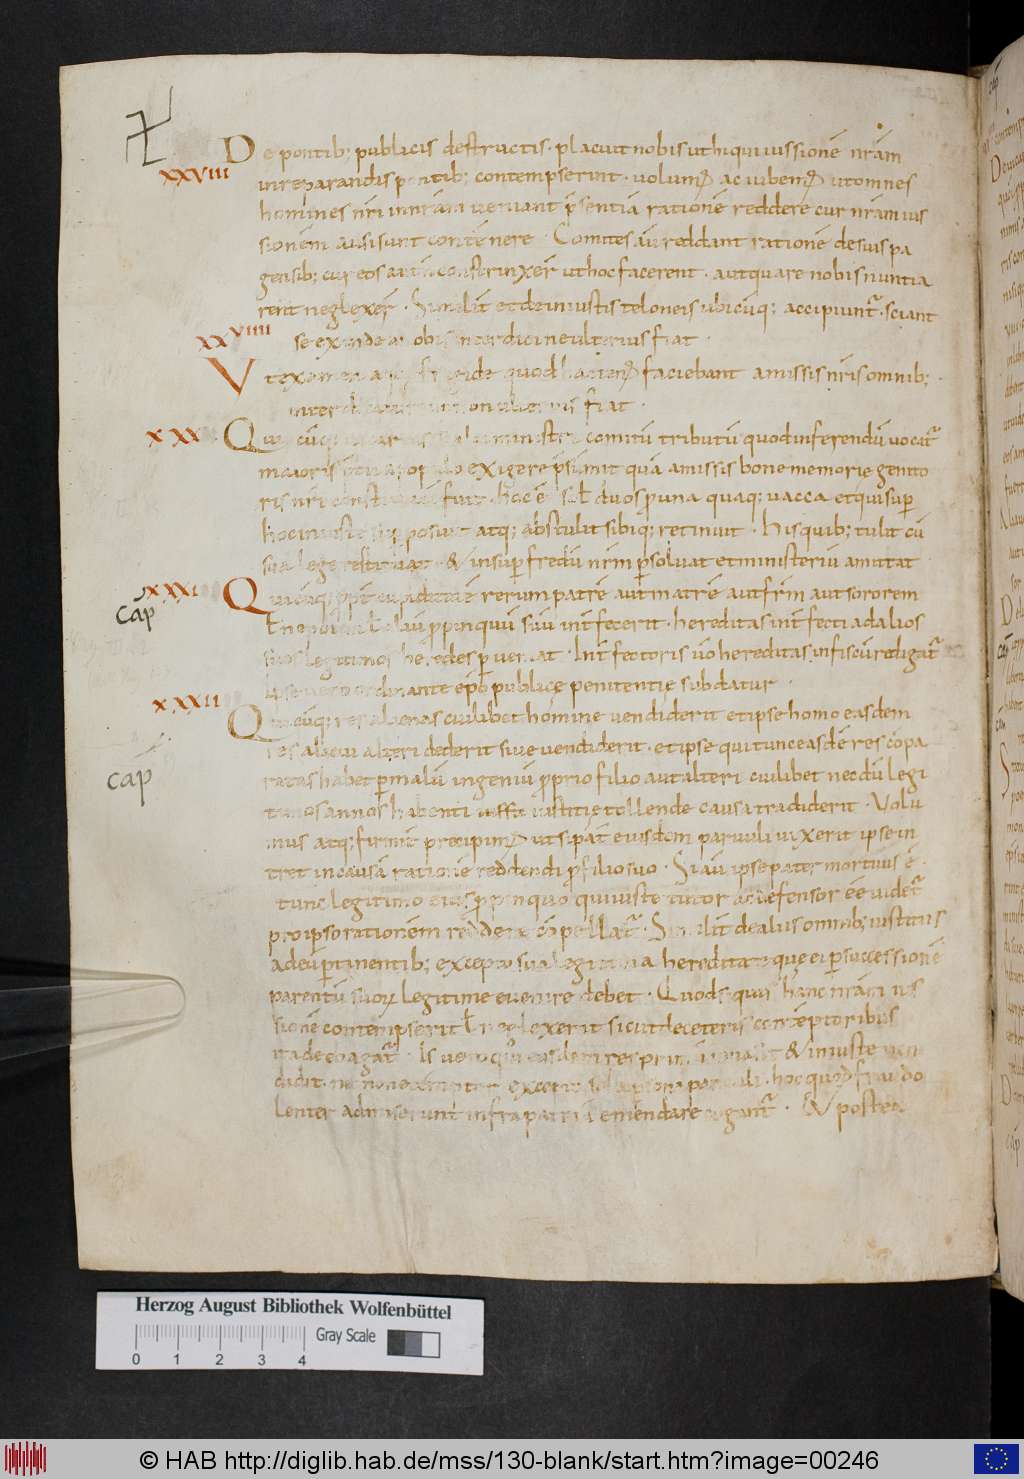 XXVIII
De pontib; publicis destructis · placuit nobis ut hi qui iussionē nrām
in reparandis pontib; contempserunt · volum; ac iubem; ut omnes
homines nri in nrām veniant p̄sentiā rationē reddere cur nrām ius
sionēm ausi sunt contēnere · Comites aū reddant rationē de suis pa
gensib; cur eos aut n̄ constrinxer̄ ut hoc facerent · aut quare nobis nuntia
rent neglexer̄ · Similit̄ et de iniustis teloneis ubicūq; accipiunt̄ · sciant
se exinde nobis ulterius fiat ·
XXVIIII
Ut examen aquę frigide quod hacten; faciebant a missis nris omnib;
interdicatur ut non ulterius fiat ·
XXX
Quicūq; vicarius ministri comitū tributū quod inferendū vocat̄
maioris p̄cii a populo exigere p̄sūmit quā a missis bone memorie genito
ris nri constitutū fuit · hoc ē sol duos pro una quaq; vacca et qui sup̄
hoc iniuste sup̄posuit atq; abstulit sibiq; retinuit · his quib; tulit cū
sua lege restituat · & insup̄ fredū nrm p̄solvat et ministeriū amittat
XXXI
cap
Quicūq; rerum patrē aut matrē aut frm aut sororem
aū p̄pinquū suū int̄fecerit · hereditas int̄fecti ad alios
suos legitimos heredes p̄veniat · Int̄fectoris ūo hereditas in fiscū redigat̄
Ipse vero ordinante ep̄o publice penitentię subdatur ·
XXXII
Quicūq; res alienas cuilibet homine vendiderit et ipse homo easdem
res alicui alteri dederit sive vendiderit · et ipse qui tunc easdē res cōpa
ratas habet p̄ malū ingeniū p̄prio filio aut alteri cuilibet necdū legi
cap
timos annos habenti iustitię tollende causa tradiderit · Volu
mus atq; firmit̄ precipim; ut si pat̄ eiusdem parvuli vixerit ipse in
tret in causā rationē reddendi p̄ filio suo · Si aū ipse pater mortuus ē
tunc legitimo eius p̄pinquo qui iuste tutor ac defensor eē videt̄
pro ipso rationēm reddere cōpellat̄ · Similit̄ de aliis omnib; iustitiis
ad eū p̄tinentib; excepto sua legitima hereditate quę ei p̄ successionē
parentū suoꝝ legitime evenire debet · Quod si quis hanc nrām ius
sionē contempserit ł neglexerit sicut de ceteris contēptoribus
ita de eo agat̄ · Is vero qui easdem res primū invasit & iniuste ven
didit · hoc quod fraudo
lenter admiserunt infra patriā emendare cogant̄ · Et postea
cap
Herzog August Bibliothek Wolfenbüttel
Gray Scale
0 1 2 3 4
© HAB http://diglib.hab.de/mss/130-blank/start.htm?image=00246